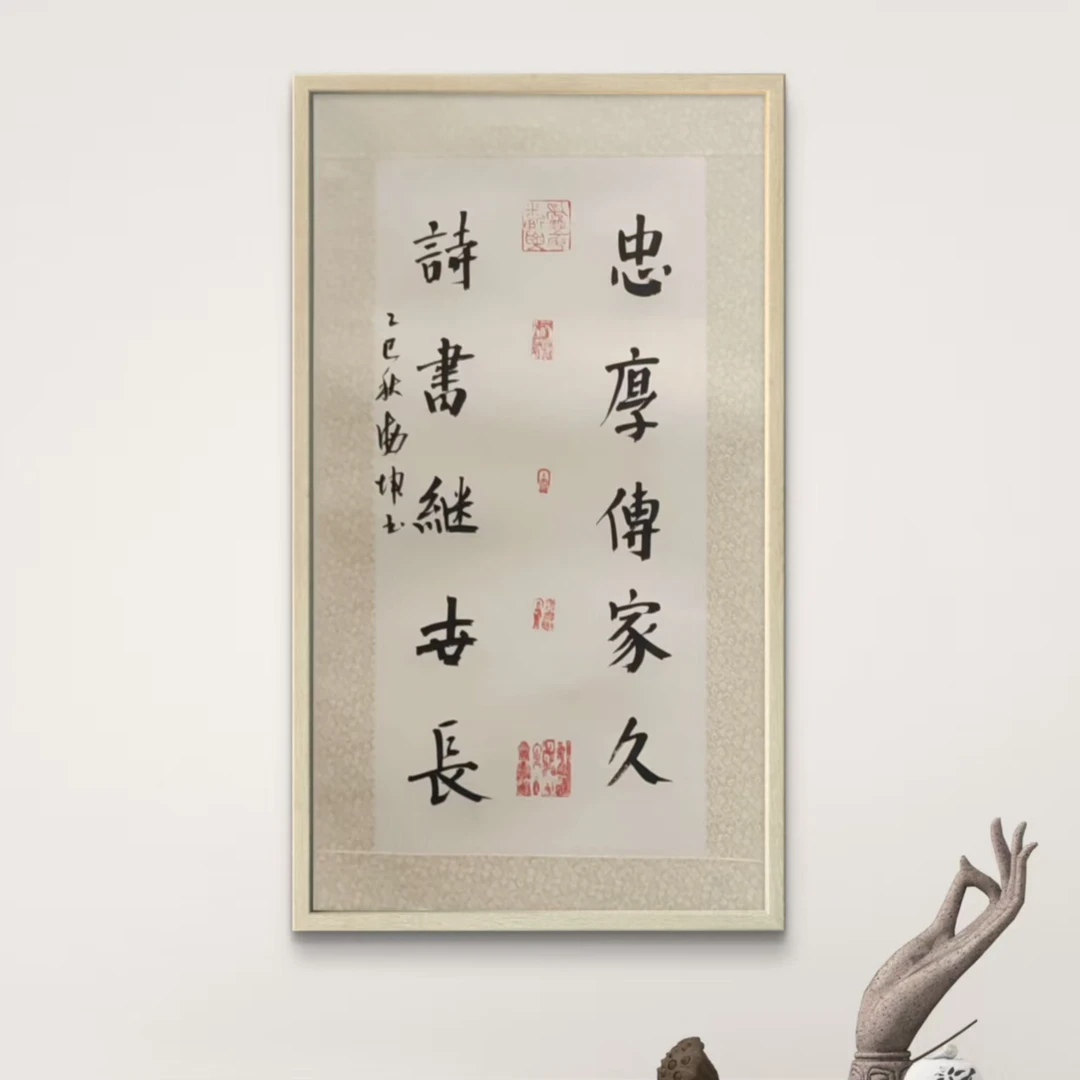 忠厚傳家久
詩書継世長
乙巳秋勇坤书